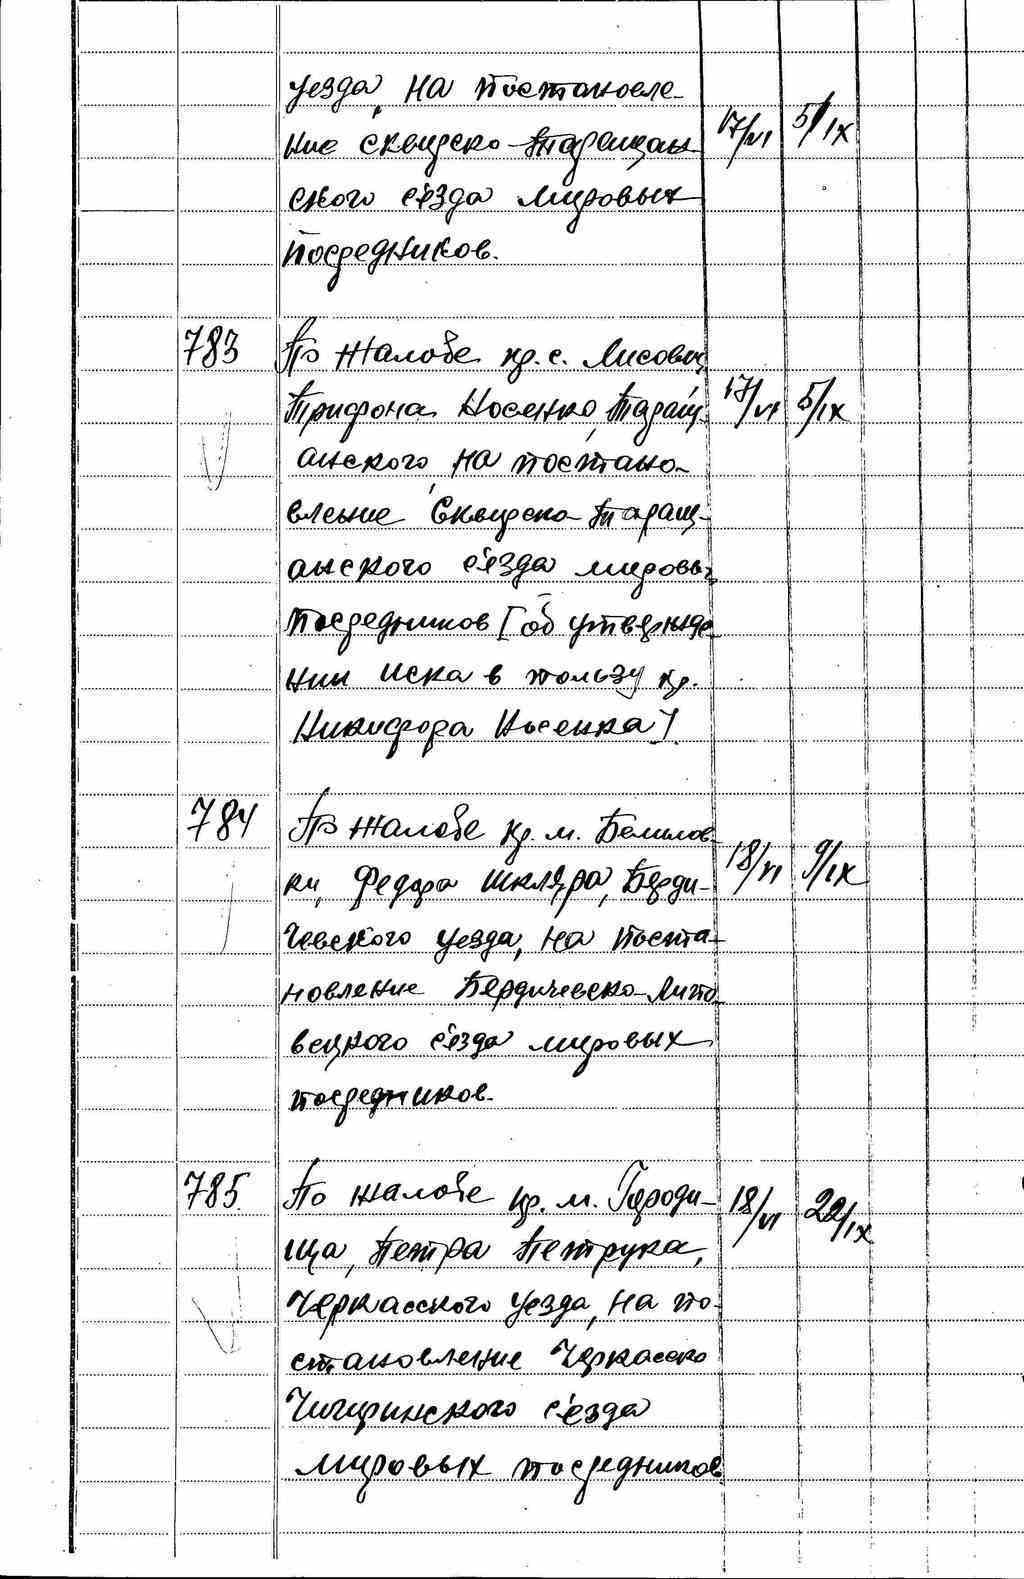 уезда, на постановле-
ние Сквирско-Таращан- 17/VI 5/IX
ского с'езда мировых
посредников.
783 По жалобе кр. с. Лисович,
Трифона Носенко, Таращ- 17/VI 5/IX
анского, на постано-
вление Сквирско-Таращ-
анского с'езда мировых
посредников [об утвержде-
нии иска в пользу кр.
Никифора Носенка].
784 По жалобе кр. м. Белилов-
ки, Федора Шкляра, Берди- 18/VI 9/IX
чевского уезда, на поста-
новление Бердичевско-Липо-
вецкого с'езда мировых
посредников.
785. По жалобе кр. м. Городи- 18/VI 22/IX
ща, Петра Петрука,
Черкасского уезда, на по-
становление Черкасско
Чигиринского с'езда
мировых посредников